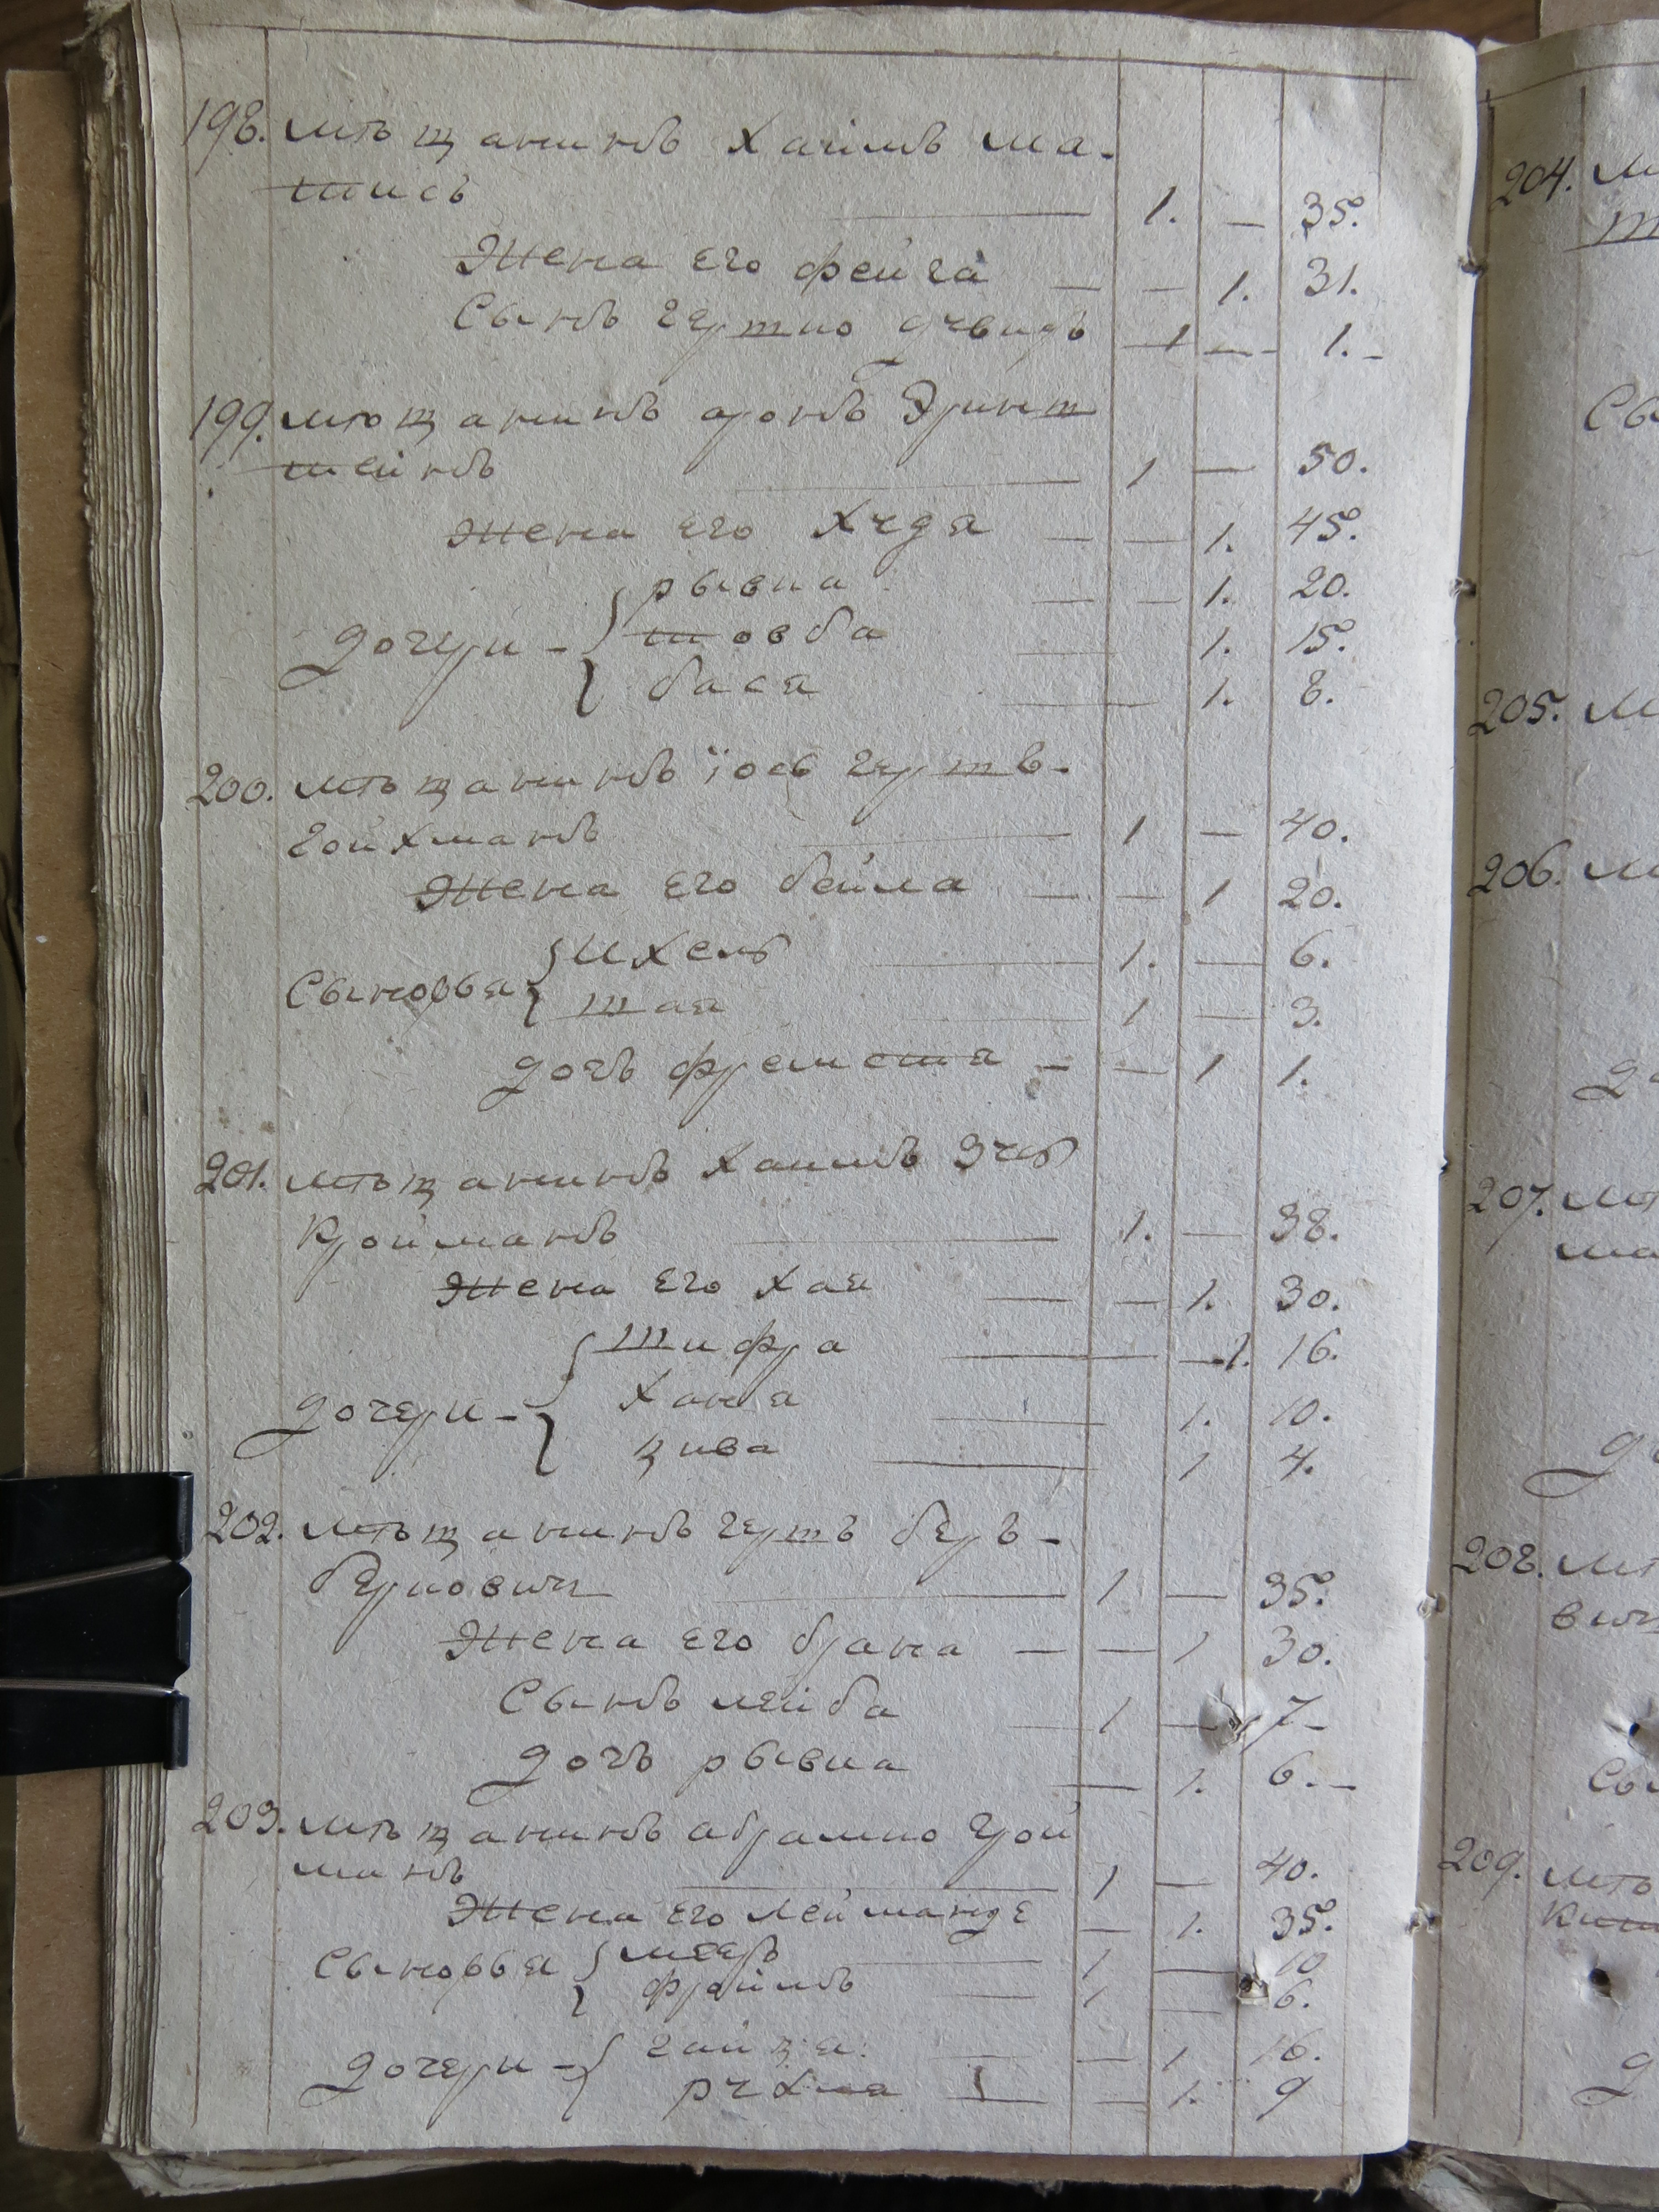 198. мѣщанинъ Хаимъ ма-
шись 1. — 35.
Жена его фейга — — 1. 31.
Сынъ гершко давидъ 1 — 1. —
199. мѣщанинъ аронъ Эринт
шейнъ 1 — 50.
Жена его Худя — — 1. 45.
рывка — 1. 20.
дочери — шовба 1. 15.
бася 1. 8.
200. мѣщанинъ iось гершъ-
гойхманъ 1 — 40.
Жена его бейла — — 1 20.
Ихель 1. — 6.
Сыновья шая 1 — 3.
дочь — — 1 1.
201. мѣщанинъ Хаимъ
Кройманъ 1. — 38.
Жена его Хая — — 1. 30.
шифра — 1. 16.
дочери — Ханя 1. 10.
цива 1 4.
202. мѣщанинъ гершъ беръ-
берковичъ 1 — 35.
Жена его брана — — 1 30.
Сынъ лейба 1 — 7 —
дочь рывка — 1. 6. —
203. мѣщанинъ абрамко грой
манъ 1 — 40.
Жена его — 1. 35.
Сыновья мееръ 1 — 10
фроимъ 1 — 6.
дочери — — 1 16.
рухля — — 1. 9
204. м
Сы
205. м
206. м
207. мѣ
ма
208. мѣ
вич
209. мѣ